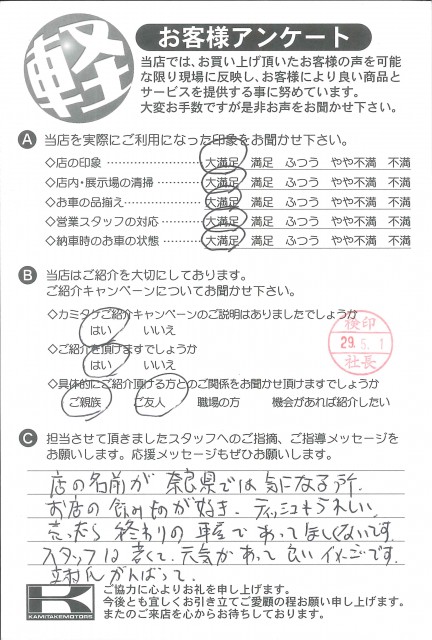 軽
お客様アンケート
当店では、お買い上げ頂いたお客様の声を可能
な限り現場に反映し、お客様により良い商品と
サービスを提供する事に努めています。
大変お手数ですが是非お声をお聞かせ下さい。
A 当店を実際にご利用になった印象をお聞かせ下さい。
◇店の印象 大満足 満足 ふつう やや不満 不満
◇店内・展示場の清掃 大満足 満足 ふつう やや不満 不満
◇お車の品揃え 大満足 満足 ふつう やや不満 不満
◇営業スタッフの対応 大満足 満足 ふつう やや不満 不満
◇納車時のお車の状態 大満足 満足 ふつう やや不満 不満
B 当店はご紹介を大切にしております。
ご紹介キャンペーンについてお聞かせ下さい。
◇カミタケご紹介キャンペーンのご説明はありましたでしょうか
はい いいえ
◇ご紹介を頂けますでしょうか
はい いいえ
◇具体的にご紹介頂ける方とのご関係をお聞かせ頂けますでしょうか
ご親族 ご友人 職場の方 機会があれば紹介したい
検印
29.5.1
社長
C 担当させて頂きましたスタッフへのご指摘、ご指導メッセージを
お願いします。応援メッセージもぜひお願いします。
店の名前が 奈良県では 気になる所.
お店の飲みものが好き. ティッシュもうれしい.
売ったら 終わりの 車屋で あってほしくないです.
スタッフは 若くて. 元気があって 良い イメージです.
がんばって.
KAMITAKEMOTORS
ご協力に心よりお礼を申し上げます。
今後とも宜しくお引き立てご愛顧の程お願い申し上げます。
またのご来店を心からお待ちしております。